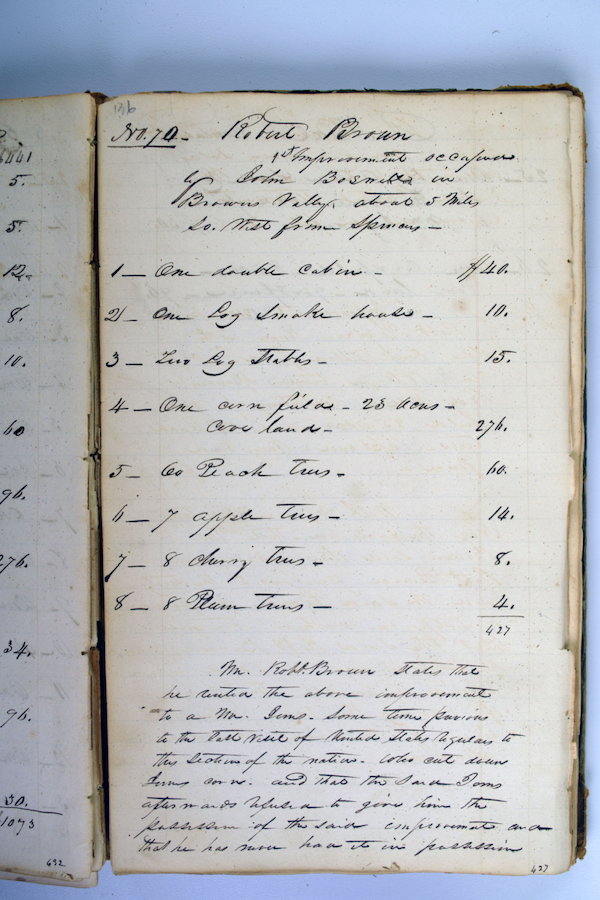 6441
5.
5.
12.
8.
10.
60
96.
276.
34.
96.
30.
1073
632
136
No. 70. Robert Brown
1st Improvement occupied
by John Boswell in
Browns Valley, about 5 Miles
So. West from Spencers —
1 — One double cabin — $40.
2 — One Log Smoke house — 10.
3 — Two Log Stables — 15.
4 — One corn field — 23 Acres —
Cove land — 276.
5 — 60 Peach trees — 60.
6 — 7 apple trees — 14.
7 — 8 cherry trees — 8.
8 — 8 Plum trees — 4.
427
Mr. Robt. Brown States that
he rented the above improvement
to a Mr. Ims. Some time previous
to the last visit of United States regulars to
this Section of the nation. Who cut down
Ims corn. and that the Said Ims
afterwards refused to give him the
possession of the said improvement and
that he has never had it in possession
427